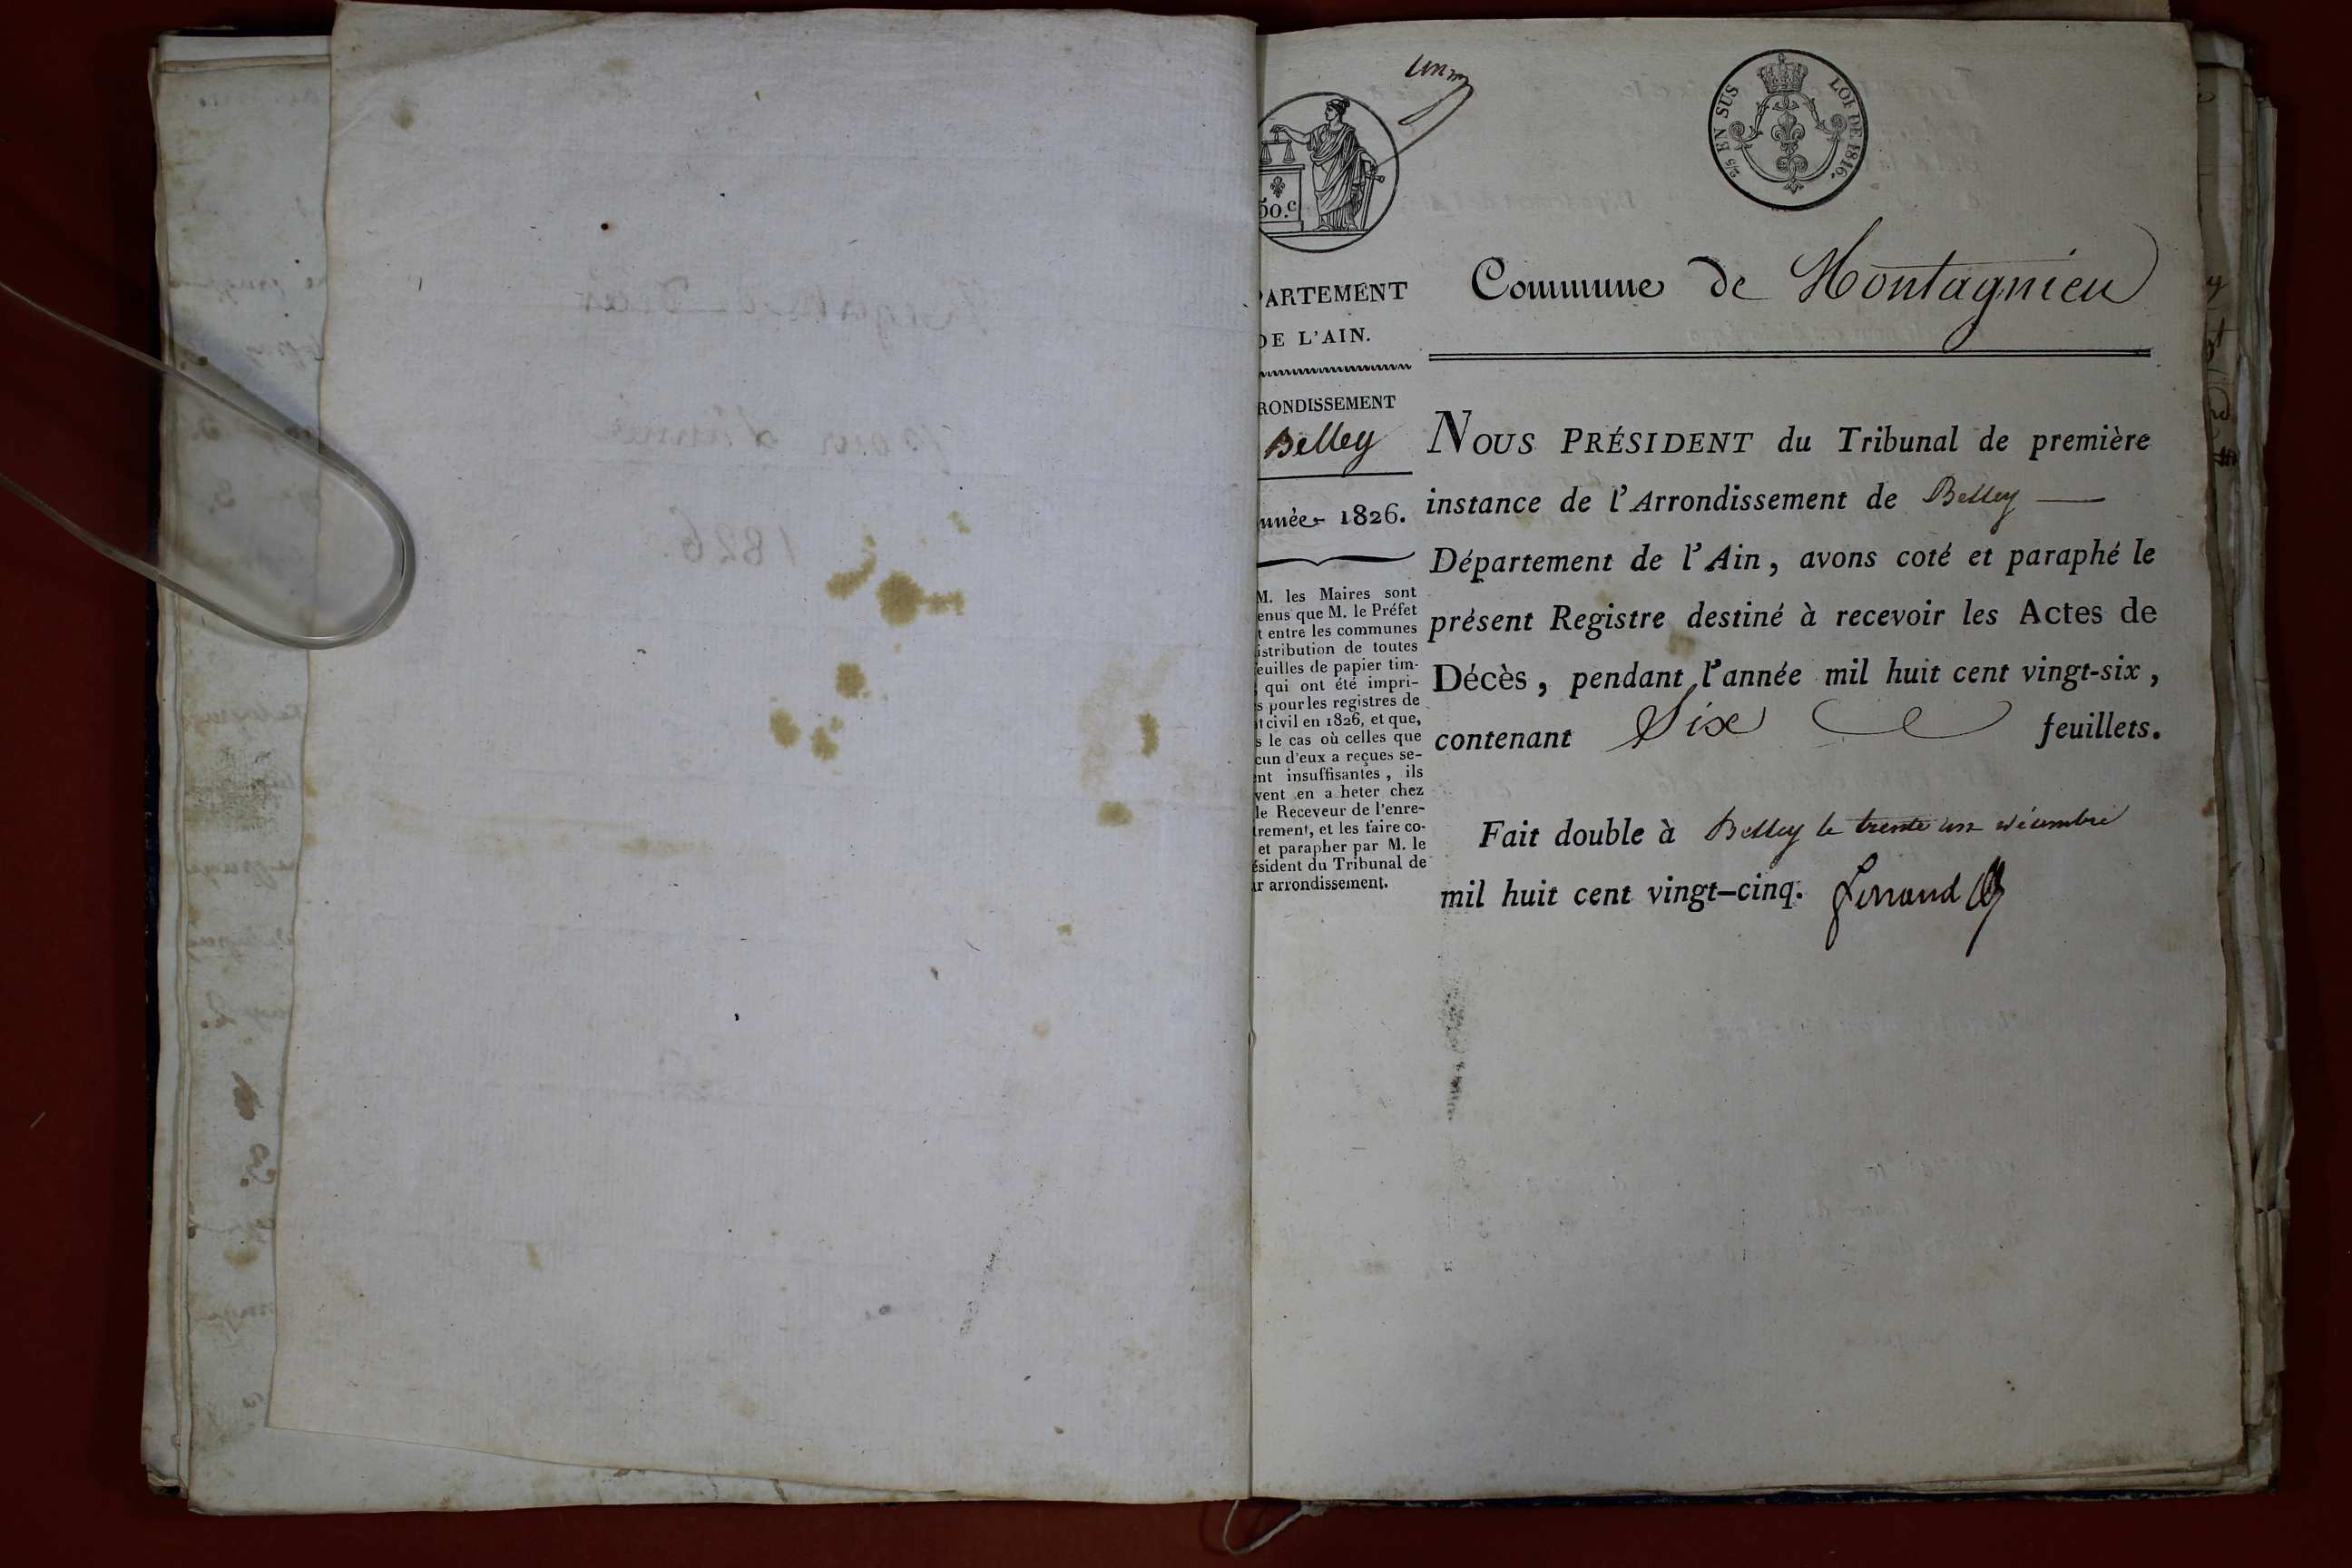 un
2/5 EN SUS
LOI DE 1816.
50.c
PARTEMENT
DE L'AIN.
RONDISSEMENT
Belley
nnée 1826.
M. les Maires sont
enus que M. le Préfet
t entre les communes
istribution de toutes
euilles de papier tim-
qui ont été impri-
s pour les registres de
t civil en 1826, et que,
s le cas où celles que
cun d'eux a reçues se-
nt insuffisantes, ils
vent en a heter chez
le Receveur de l'enre-
trement, et les faire co-
et parapher par M. le
ésident du Tribunal de
r arrondissement.
Commune de Montagnieu
NOUS PRÉSIDENT du Tribunal de première
instance de l'Arrondissement de Belley
Département de l'Ain, avons coté et paraphé le
présent Registre destiné à recevoir les Actes de
Décès, pendant l'année mil huit cent vingt-six,
contenant Six feuillets.
Fait double à Belley le trente un décembre
mil huit cent vingt-cinq. Ferrand
1826.